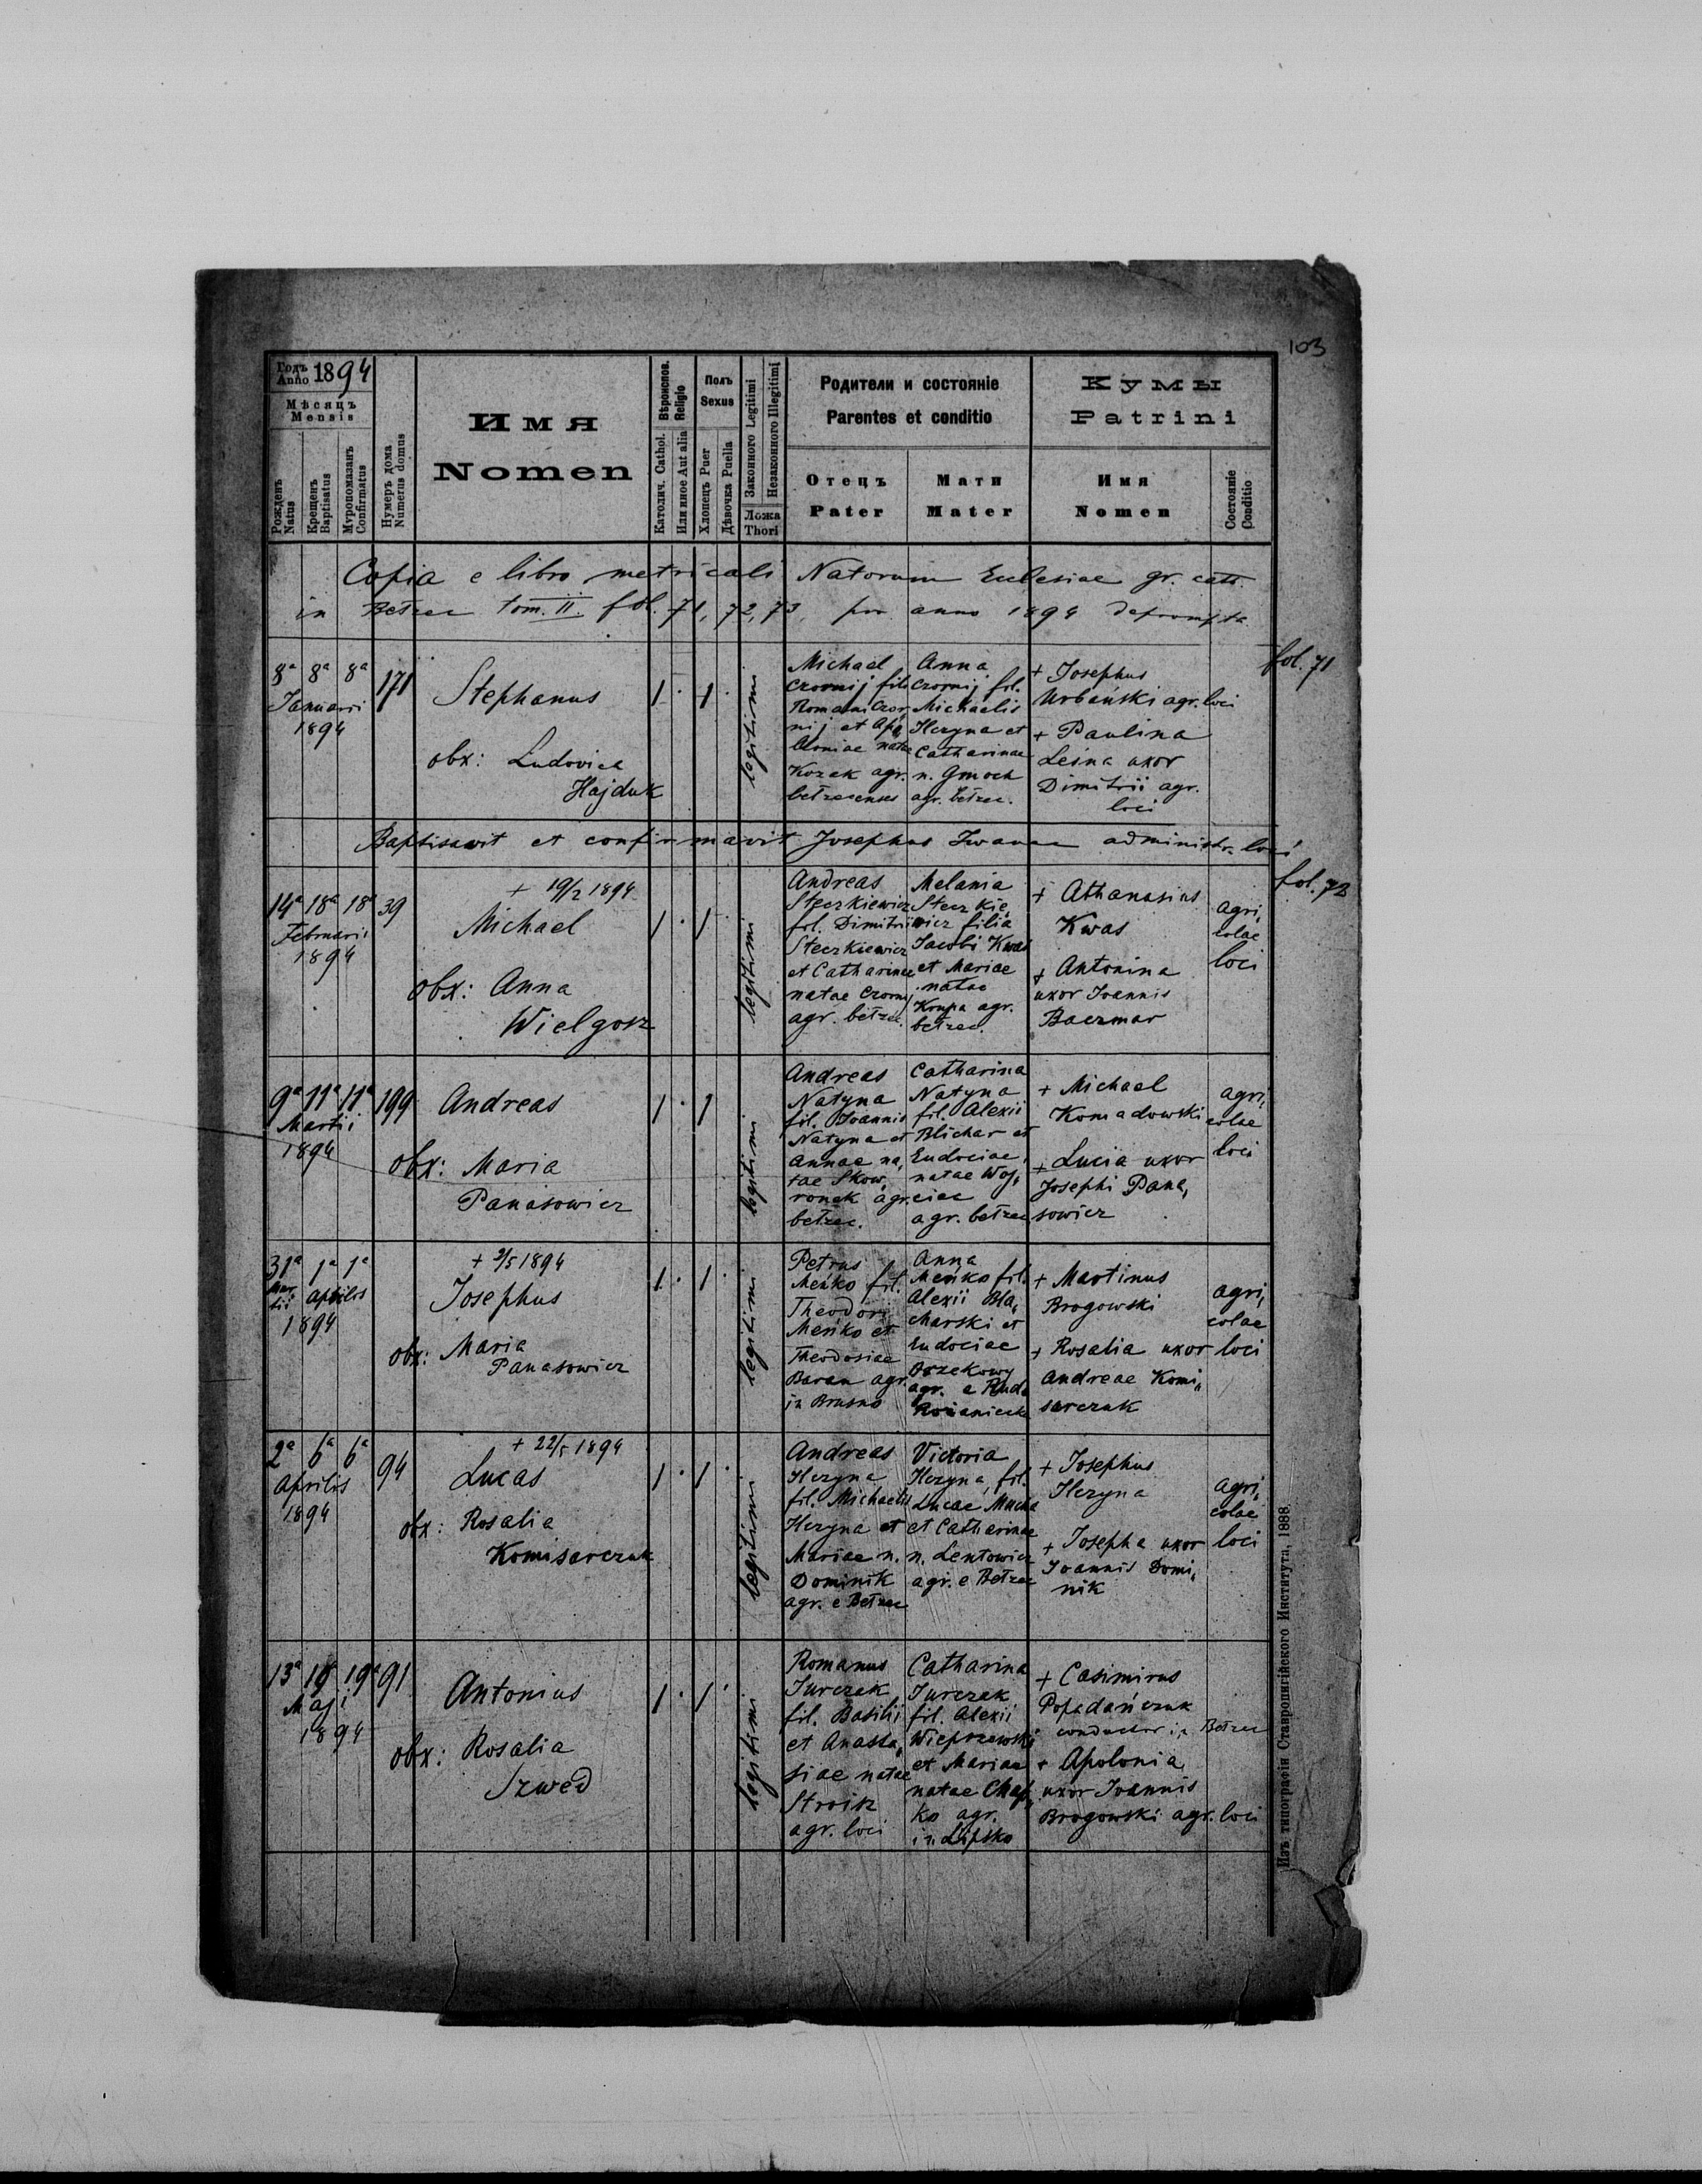 103
Годъ Anno 1894
Мѣсяцъ
Mensis
Рожденъ Natus
Крещенъ Baptisatus
Муропомазанъ Confirmatus
Нумеръ дома Numerus domus
Имя
Nomen
Вѣроиспов. Religio
Католич. Cathol.
Или иное Aut alia
Полъ
Sexus
Хлопецъ Puer
Дѣвочка Puella
Законного Legitimi
Незаконного Illegitimi
Ложа
Thori
Родители и состояніе
Parentes et conditio
Отецъ
Pater
Мати
Mater
Кумы
Patrini
Имя
Nomen
Состояніе
Conditio
Copia e libro metricali Natorum Ecclesiae gr. cath.
in Bełzec tom. II. fol. 71, 72, 73, pro anno 1894 deprompta
fol. 71
8ª 8ª 8ª
Januarii
1894
171
Stephanus
obx: Ludovica
Hajduk
1 . 1 .
legitimi
Michael
Czornij fil.
Romani Czor„
nij et Apo„
loniae natae
Kozak agr.
bełzecenses
Anna
Czornij fil.
Michaelis
Heryna et
Catharinae
n. Gmoch
agr. bełzec.
+ Josephus
Urbański agr. loci
+ Paulina
Leśna uxor
Dimitrii agr.
loci
Baptisavit et confirmavit Josephus Iwanec administr. loci
fol. 72
14ª 18ª 18ª
Februarii
1894
39
+ 19/2 1894
Michael
obx: Anna
Wielgosz
1 . 1
legitimi
Andreas
Steczkiewicz
fil. Dimitrii
Steczkiewicz
et Catharinae
natae Czornij
agr. bełzec.
Melania
Steczkie„
wicz filia
Jacobi Kwas
et Mariae
natae
Krupa agr.
bełzec.
+ Athanasius
Kwas
+ Antonina
uxor Joannis
Baczmar
agri„
colae
loci
9ª 11ª 11ª
Martii
1894
199
Andreas
obx: Maria
Panasowicz
1 . 1
legitimi
Andreas
Natyna
fil. Joannis
Natyna et
Annae na„
tae Skow„
ronek agr.
bełzec.
Catharina
Natyna
fil. Alexii
Blichar et
Eudociae
natae Woj„
ciac
agr. bełzec
+ Michael
Komadowski
+ Lucia uxor
Josephi Pana„
sowicz
agri„
colae
loci
31ª 1ª 1ª
Mar„
tii Aprilis
1894
+ 2/5 1894
Josephus
obx: Maria
Panasowicz
1 . 1 .
legitimi
Petrus
Meńko fil.
Theodori
Meńko et
Theodosiae
Baran agr.
in Brusno
Anna
Meńko fil.
Alexii Bla„
Marski et
Eudociae
Orzekowy
agr. e Ruda
Rożaniecka
+ Martinus
Brogowski
+ Rosalia uxor
Andreae Komi„
sarczuk
agri„
colae
loci
2ª 6ª 6ª
Aprilis
1894
94
+ 22/5 1894
Lucas
obx: Rosalia
Komisarczuk
1 . 1 .
legitimi
Andreas
Heryna
fil. Michaelis
Heryna et
Mariae n.
Dominik
agr. e Bełzec
Victoria
Heryna, fil.
Lucae Mucha
et Catharinae
n. Lentowicz
agr. e Bełzec
+ Josephus
Heryna
+ Josepha uxor
Joannis Domi„
nik
agri„
colae
loci
13ª 19ª 19ª
Maji
1894
91
Antonius
obx: Rosalia
Szwed
1 . 1 .
legitimi
Romanus
Jurczak
fil. Basilii
et Anasta„
siae natae
Stroisz
agr. loci
Catharina
Jurczak
fil. Alexii
Wieprzewski
et Mariae
natae Chap„
ko agr.
in Lipsko
+ Casimirus
Popadańczuk
conductor in Bełzec
+ Apolonia
uxor Joannis
Brogowski agr. loci
Изъ типографіи Ставропигійского Института, 1888.